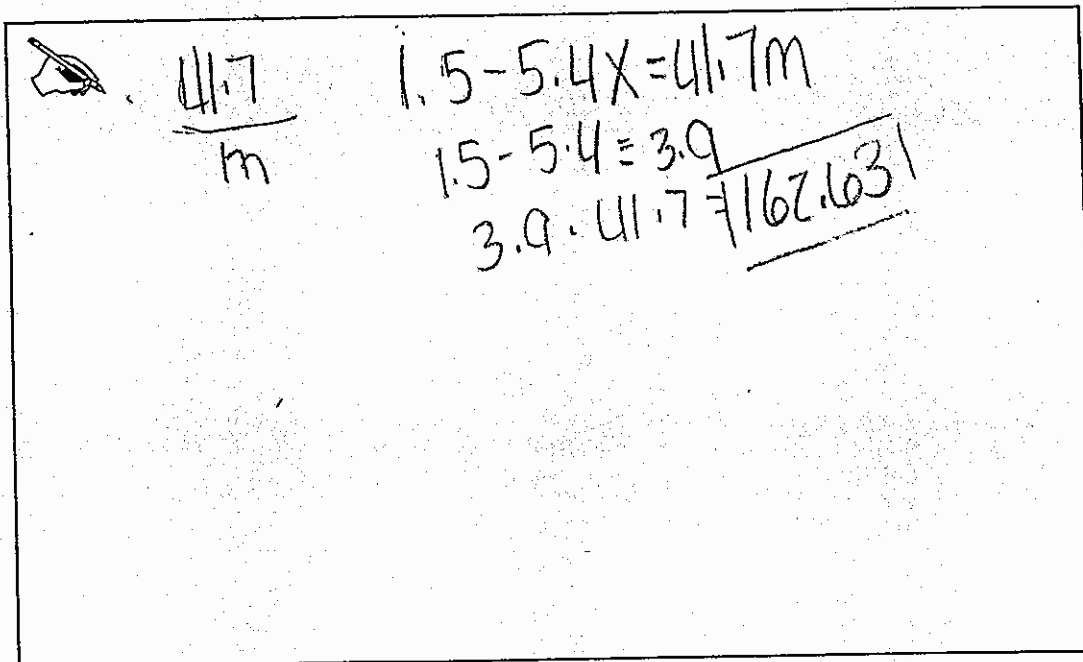 41.7
m
1.5 - 5.4x = 41.7m
1.5 - 5.4 = 3.9
3.9 · 41.7 = 162.631